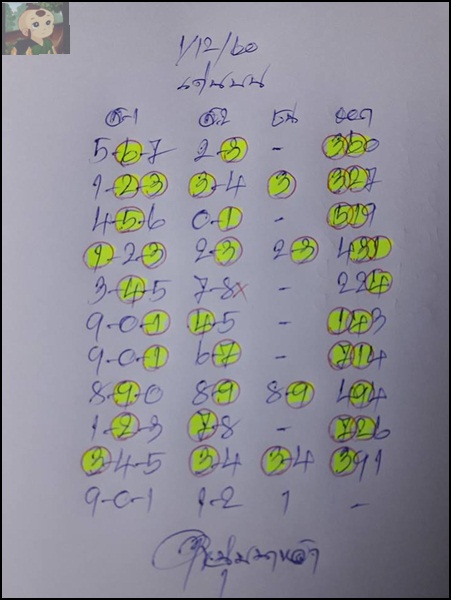 1/12/60
เด่นบน
ออก
5-6-7 2-3 - 360
1-2-3 3-4 3 327
4-5-6 0-1 - 519
1-2-3 2-3 2-3 431
3-4-5 7-8x - 224
9-0-1 4-5 - 143
9-0-1 6-7 - 714
8-9-0 8-9 8-9 494
1-2-3 7-8 - 726
3-4-5 3-4 3-4 391
9-0-1 1-2 1 -